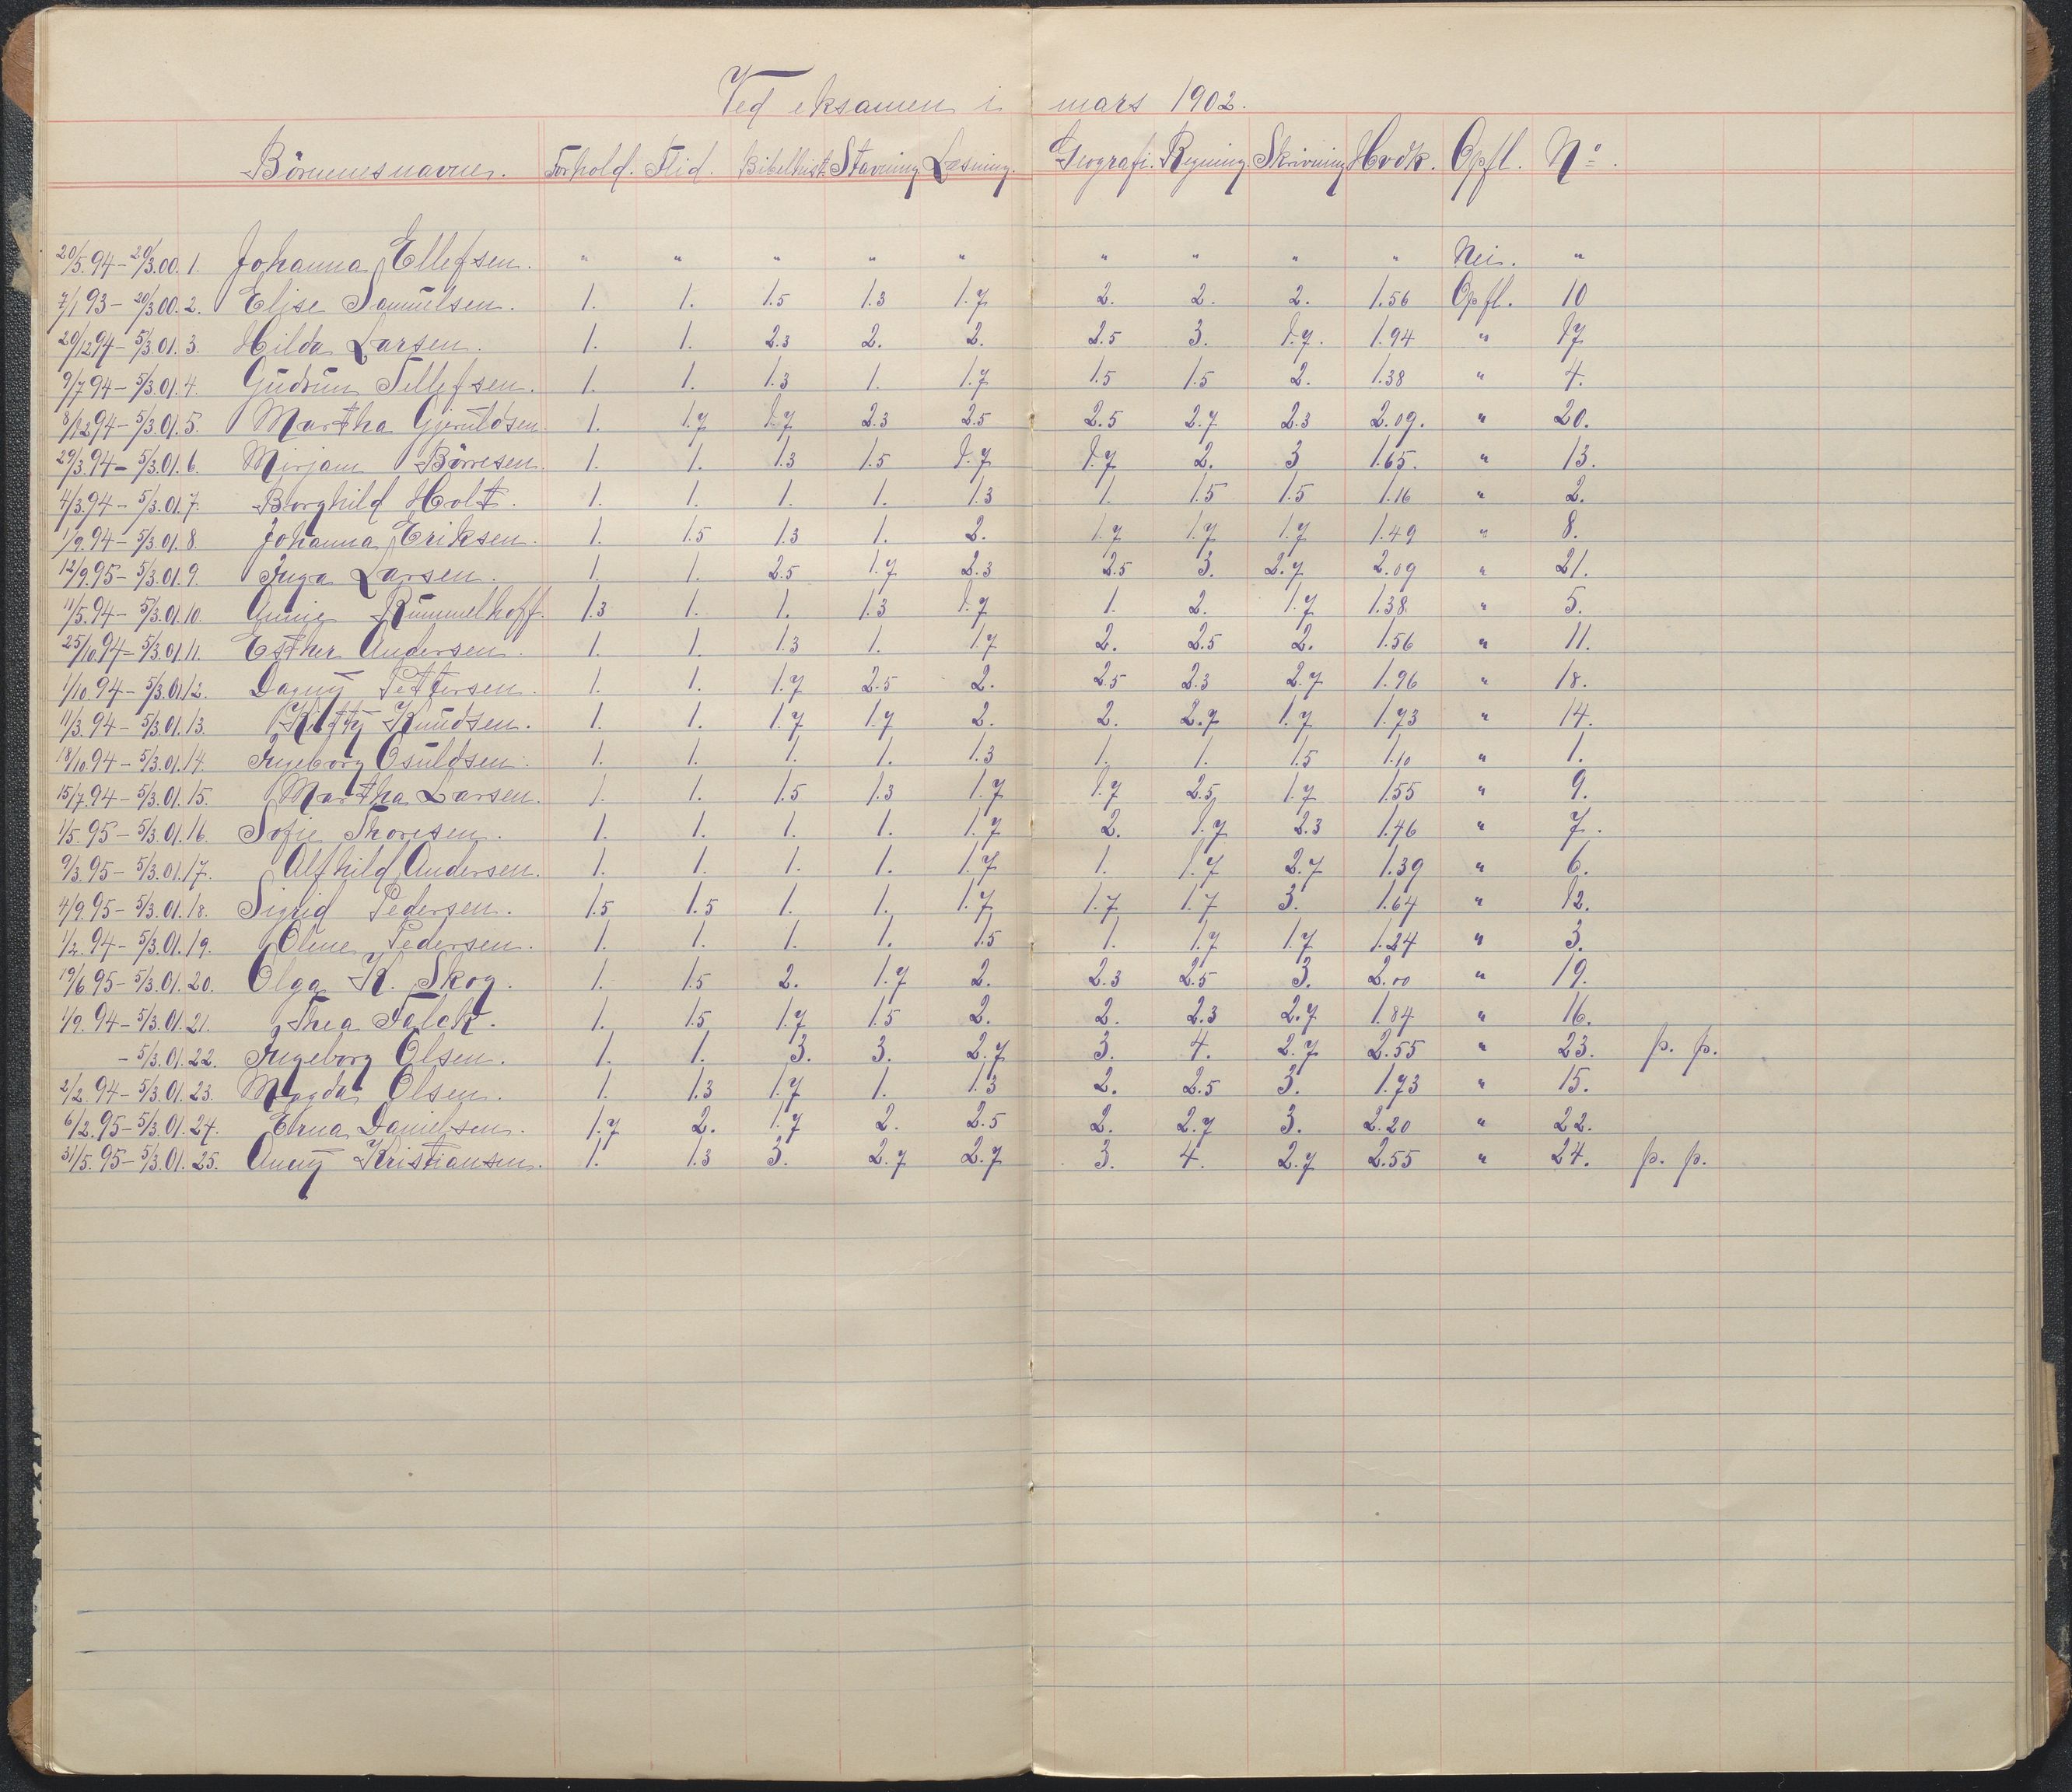 Ved eksamen i mars 1902.
Börnenes navne. Forhold. Flid. Bibelhist. Stavning. Læsning. Geografi. Regning. Skrivning Hvdk. Opfl. No.
20/5.94 - 20/3.00. 1. Johanna Ellefsen. " " " " " " " " " Nei. "
7/1 93 - 20/3 00. 2. Elise Samuelsen. 1. 1. 1.5 1.3 1.7 2. 2. 2. 1.56 Opfl. 10
20/12 94 - 5/3.01. 3. Hilda Larsen. 1. 1. 2.3 2. 2. 2.5 3. 1.7. 1.94 " 17
9/7 94 - 5/3.01. 4. Gudrun Tellefsen. 1. 1. 1.3 1. 1.7 1.5 1.5 2. 1.38 " 4.
8/12 94 - 5/3.01. 5. Martha Gjeruldsen. 1. 1.7 1.7 2.3 2.5 2.5 2.7 2.3 2.09. " 20.
29/3.94 - 5/3.01. 6. Mirjam Börresen. 1. 1. 1.3 1.5 1.7 1.7 2. 3 1.65. " 13.
4/3.94 - 5/3.01. 7. Borghild Holt. 1. 1. 1. 1. 1.3 1. 1.5 1.5 1.16 " 2.
1/9.94 - 5/3.01. 8. Johanna Eriksen. 1. 1.5 1.3 1. 2. 1.7 1.7 1.7 1.49 " 8.
12/9.95 - 5/3.01. 9. Inga Larsen. 1. 1. 2.5 1.7 2.3 2.5 3. 2.7 2.09 " 21.
11/5.94 - 5/3.01. 10. Annie Rummelhoff. 1.3 1. 1. 1.3 1.7 1. 2. 1.7 1.38 " 5.
25/10.94 - 5/3.01. 11. Esther Andersen. 1. 1. 1.3 1. 1.7 2. 2.5 2. 1.56 " 11.
1/10.94 - 5/3.01. 12. Dagny Pettersen. 1. 1. 1.7 2.5 2. 2.5 2.3 2.7 1.96 " 18.
11/3.94 - 5/3.01. 13. Kitty Knudsen. 1. 1. 1.7 1.7 2. 2. 2.7 1.7 1.73 " 14.
18/10.94 - 5/3.01. 14. Ingeborg Osuldsen. 1. 1. 1. 1. 1.3 1. 1. 1.5 1.10 " 1.
15/7.94 - 5/3.01. 15. Martha Larsen. 1. 1. 1.5 1.3 1.7 1.7 2.5 1.7 1.55 " 9.
1/5.95 - 5/3.01. 16. Sofie Thoresen. 1. 1. 1. 1. 1.7 2. 1.7 2.3 1.46 " 7.
9/3.95 - 5/3.01. 17. Alfhild Andersen. 1. 1. 1. 1. 1.7 1. 1.7 2.7 1.39 " 6.
4/9.95 - 5/3.01. 18. Sigrid Pedersen. 1.5 1.5 1. 1. 1.7 1.7 1.7 3. 1.64 " 12.
1/2.94 - 5/3.01. 19. Oline Pedersen. 1. 1. 1. 1. 1.5 1. 1.7 1.7 1.24 " 3.
19/6.95 - 5/3.01. 20. Olga K. Skog. 1. 1.5 2. 1.7 2. 2.3 2.5 3. 2.00 " 19.
1/9.94 - 5/3.01. 21. Thea Falck. 1. 1.5 1.7 1.5 2. 2. 2.3 2.7 1.84 " 16.
- 5/3.01. 22. Ingeborg Olsen. 1. 1. 3. 3. 2.7 3. 4. 2.7 2.55 " 23. p. p.
2/2.94 - 5/3.01. 23. Magda Olsen. 1. 1.3 1.7 1. 1.3 2. 2.5 3. 1.73 " 15.
6/2.95 - 5/3.01. 24. Erna Danielsen. 1.7 2. 1.7 2. 2.5 2. 2.7 3. 2.20 " 22.
31/5.95 - 5/3.01. 25. Anny Kristiansen. 1. 1.3 3. 2.7 2.7 3. 4. 2.7 2.55 " 24. p. p.